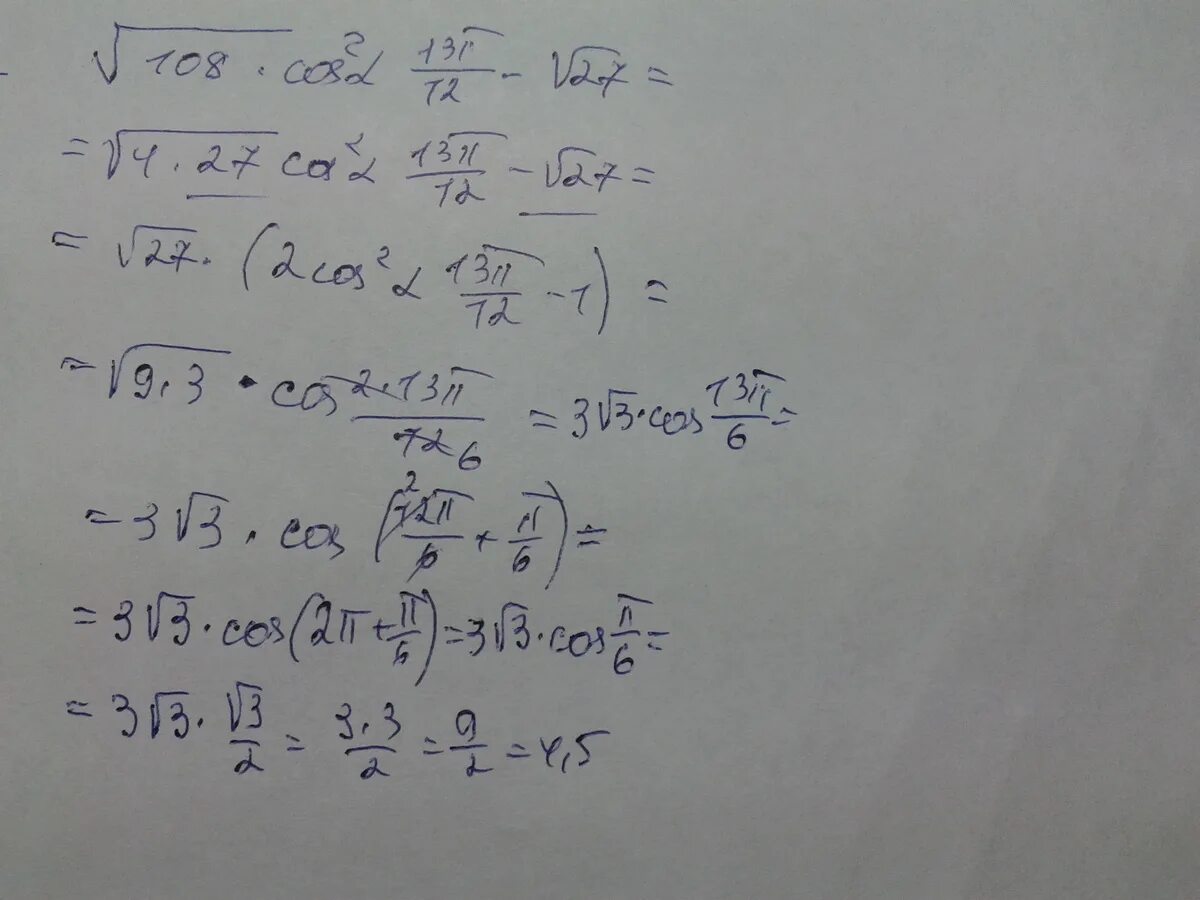 √108 · cos²α 13π/12 - √27 =
= √4 · 27 cos²α 13π/12 - √27 =
= √27 · (2cos²α 13π/12 - 1) =
= √9·3 · cos 2·13π/12 6 = 3√3 · cos 13π/6 =
= 3√3 · cos (12π/6 2 + π/6) =
= 3√3 · cos(2π + π/6) = 3√3 · cos π/6 =
= 3√3 · √3/2 = 3·3/2 = 9/2 = 4,5